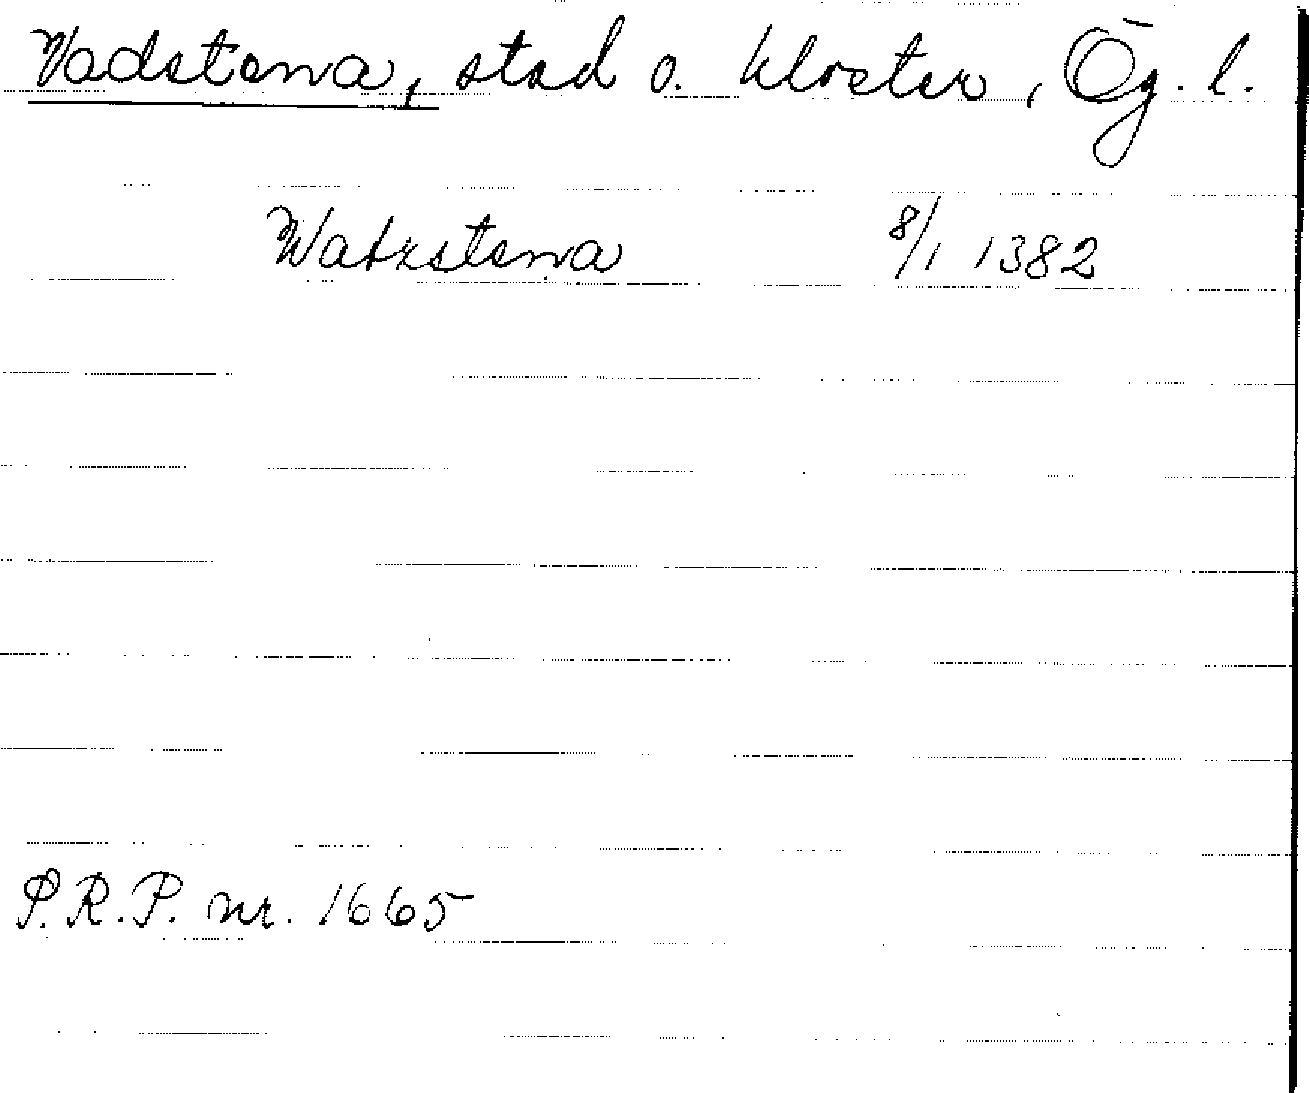 Vadstena, stad o. kloster, Ög. l.
Watzstena 8/1 1382
P.R.P. nr. 1665